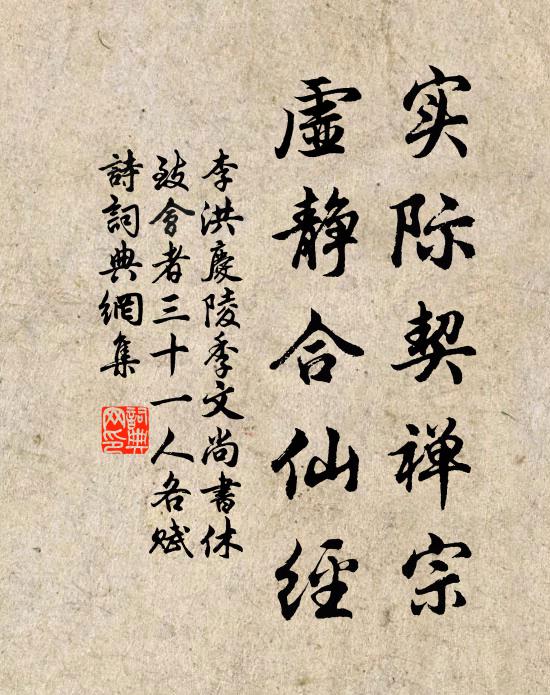 实际契禅宗
虚静合仙经
李洪慶陵季文尚書休
致會者三十一人各赋
詩詞典網集
詞典网印